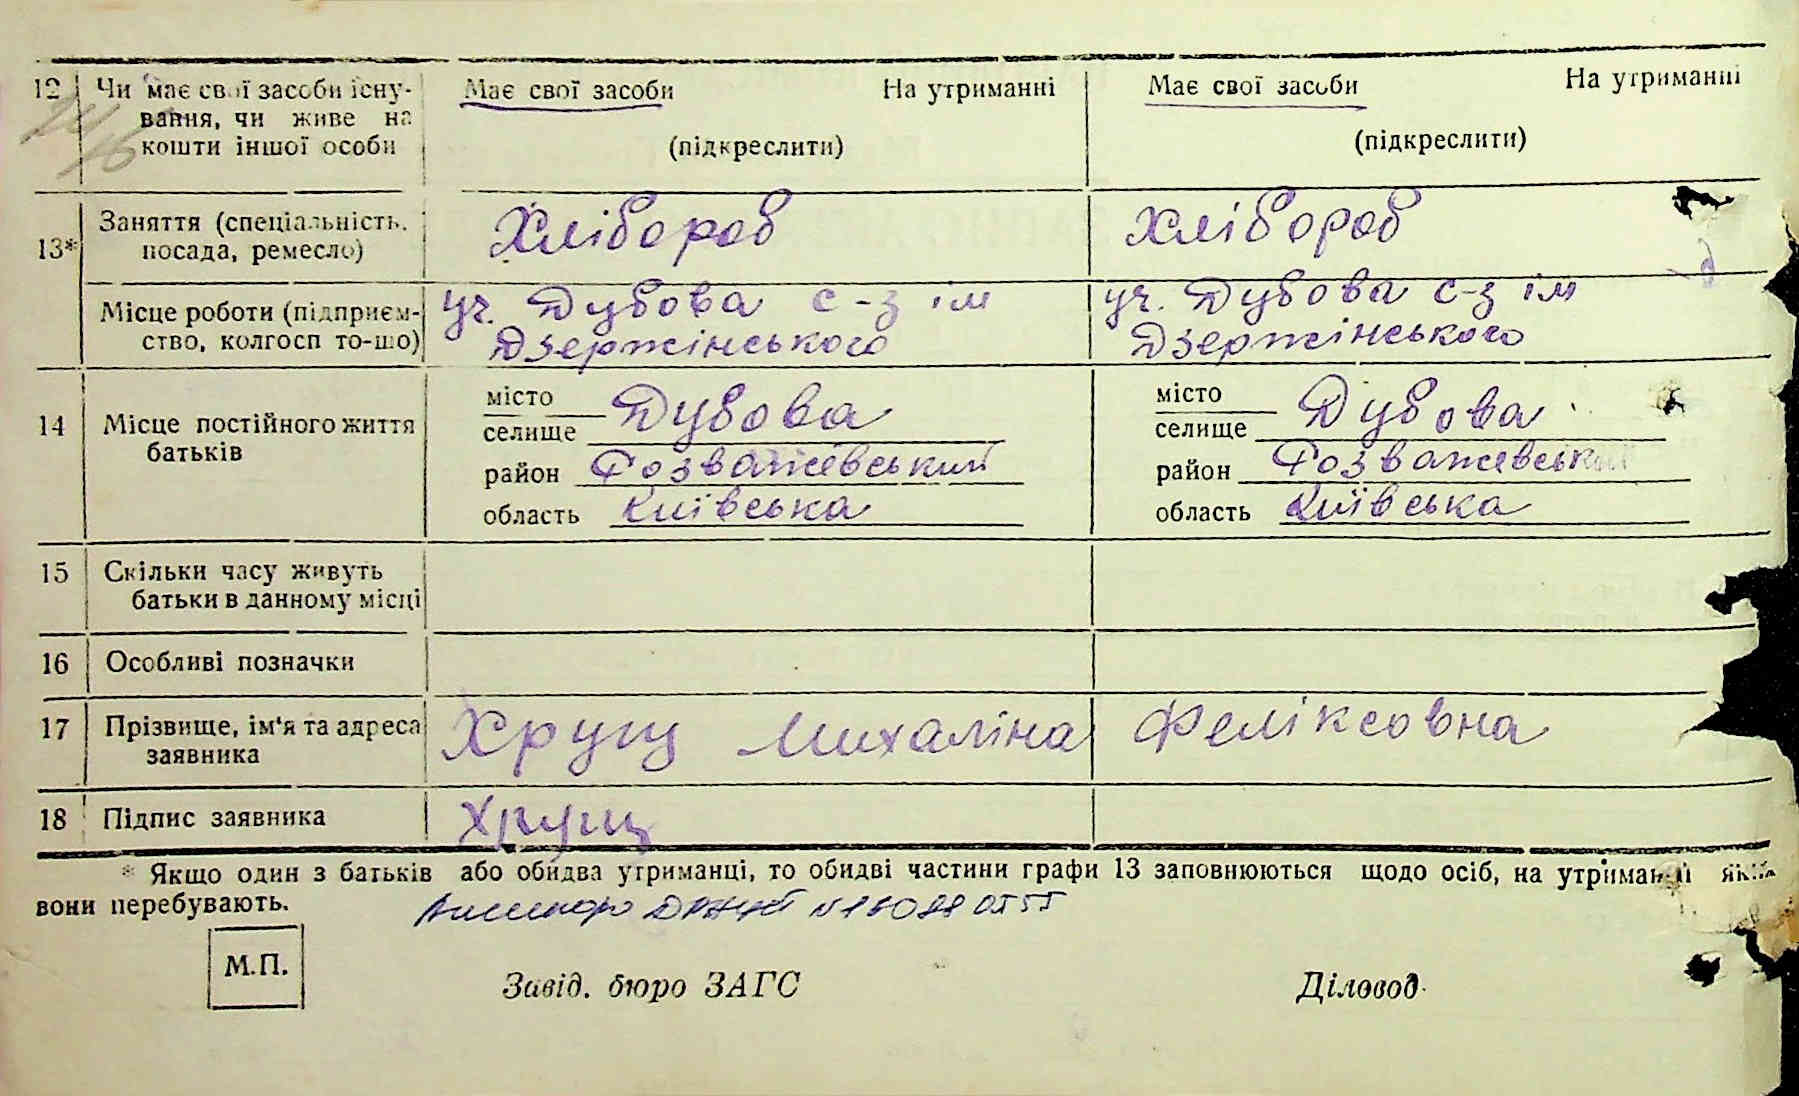 12 Чи має свої засоби існу- Має свої засоби На утриманні Має свої засоби На утриманні
вання, чи живе на
кошти іншої особи (підкреслити) (підкреслити)
13* Заняття (спеціальність, Хлібороб Хлібороб
посада, ремесло)
Місце роботи (підприєм- уч. Дубова с-з ім уч. Дубова с-з ім
ство, колгосп то-що) Дзержінського Дзержінського
14 Місце постійного життя місто Дубова місто Дубова
батьків селище селище
район Розважевський район Розважевський
область Київська область Київська
15 Скільки часу живуть
батьки в данному місці
16 Особливі позначки
17 Прізвище, ім'я та адреса Хрущ Михаліна Феліксовна
заявника
18 Підпис заявника Хрущ
* Якщо один з батьків або обидва утриманці, то обидві частини графи 13 заповнюються щодо осіб, на утриманні яких
вони перебувають.
М.П. Завід. бюро ЗАГС Діловод